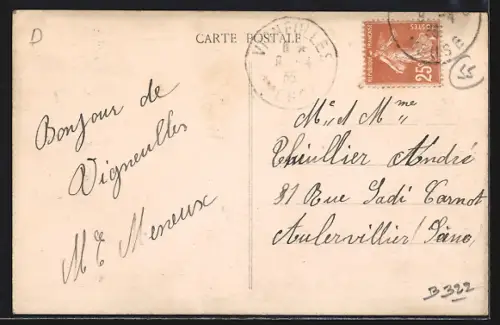 D
CARTE POSTALE
VIGNEULLES
8 *
8 - 4
35
REPUBLIQUE FRANÇAISE
POSTES
25c
55
Bonjour de
Vigneulles
M E Meneux
Mr et Mme
Theullier André
81 Rue Sadi Carnot
Aulervillier (Seine)
B 322